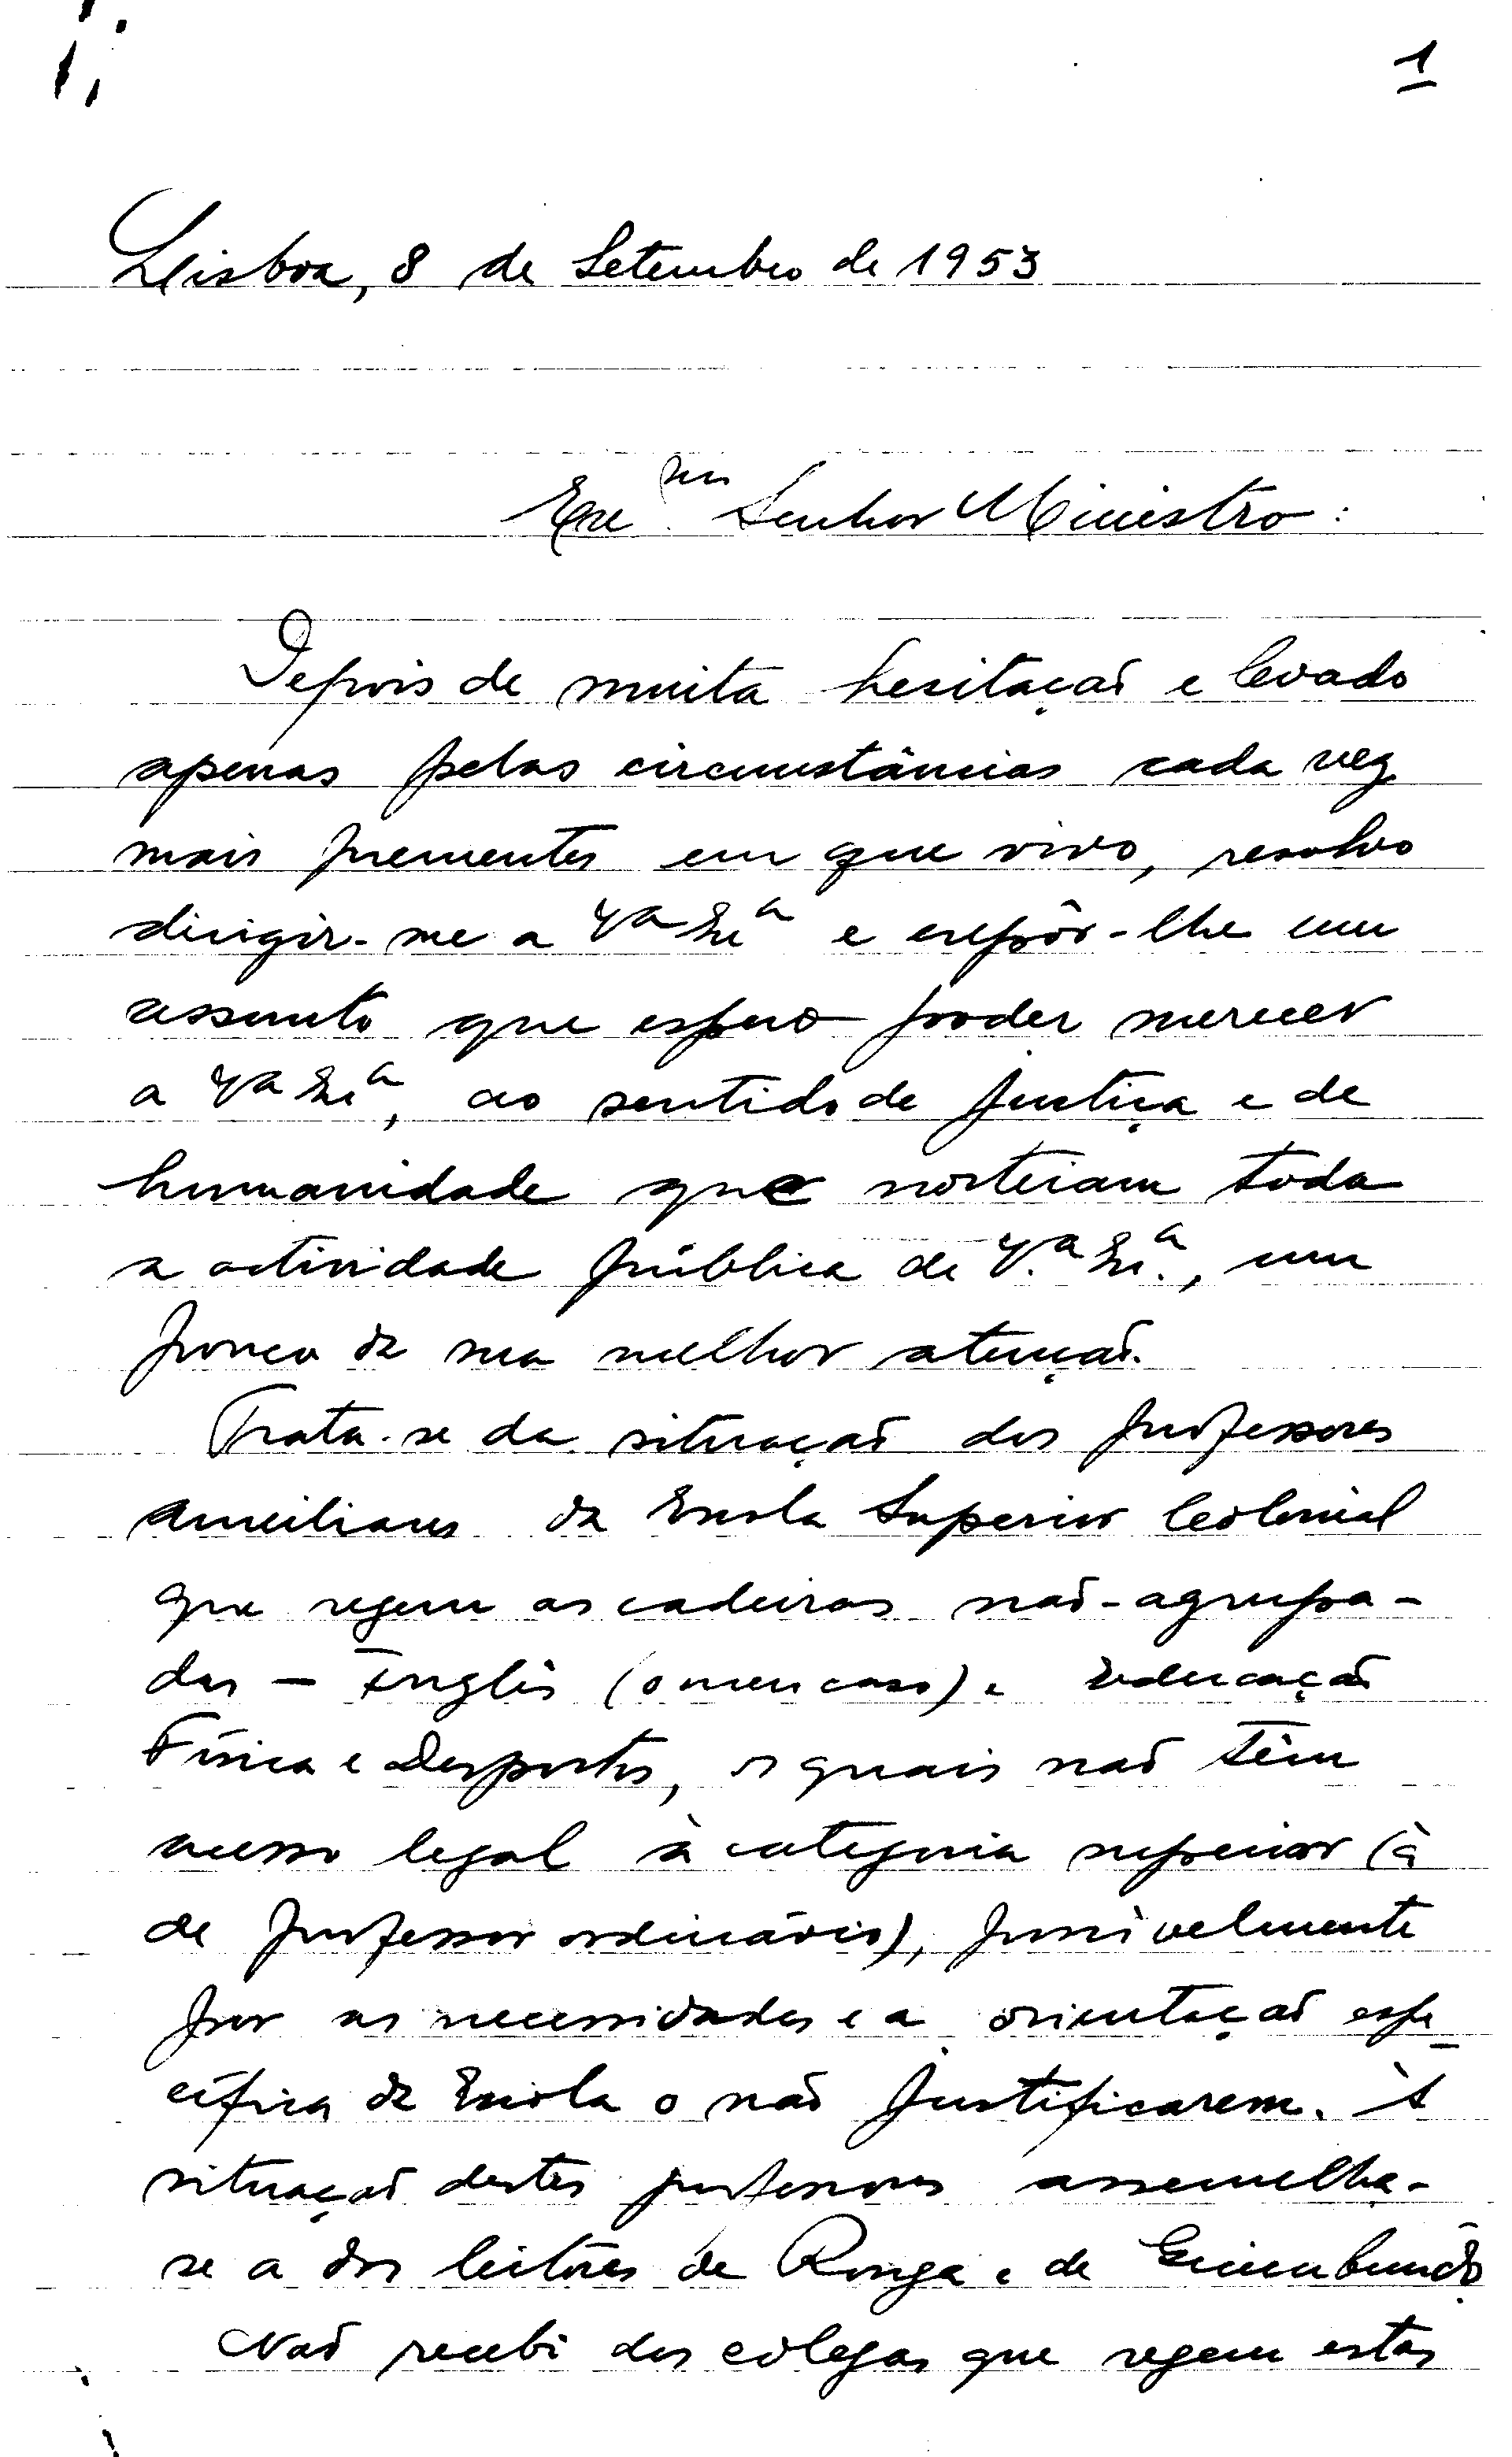 1
Lisboa, 8 de Setembro de 1953
Exc.mo Senhor Ministro:
Depois de muita hesitação e levado
apenas pelas circunstâncias cada vez
mais prementes em que vivo, resolvo
dirigir-me a Vª Exª e expôr-lhe um
assunto que espero poder merecer
a Vª Exª, ao sentido de justiça e de
humanidade que norteiam toda
a actividade pública de V.ª Ex.ª, um
pouco da sua melhor atenção.
Trata-se da situação dos professores
auxiliares da Escola Superior Colonial
que regem as cadeiras não-agrupa-
das — Inglês (o meu caso) e Educação
Física e Desportos, os quais não têm
acesso legal à categoria superior (à
de professor ordinário), possivelmente
por as necessidades e a orientação espe-
cífica da Escola o não justificarem. A
situação destes professores assemelha-
se a dos leitores de Ronga e de Quimbundo
Não recebi dos colegas que regem estas